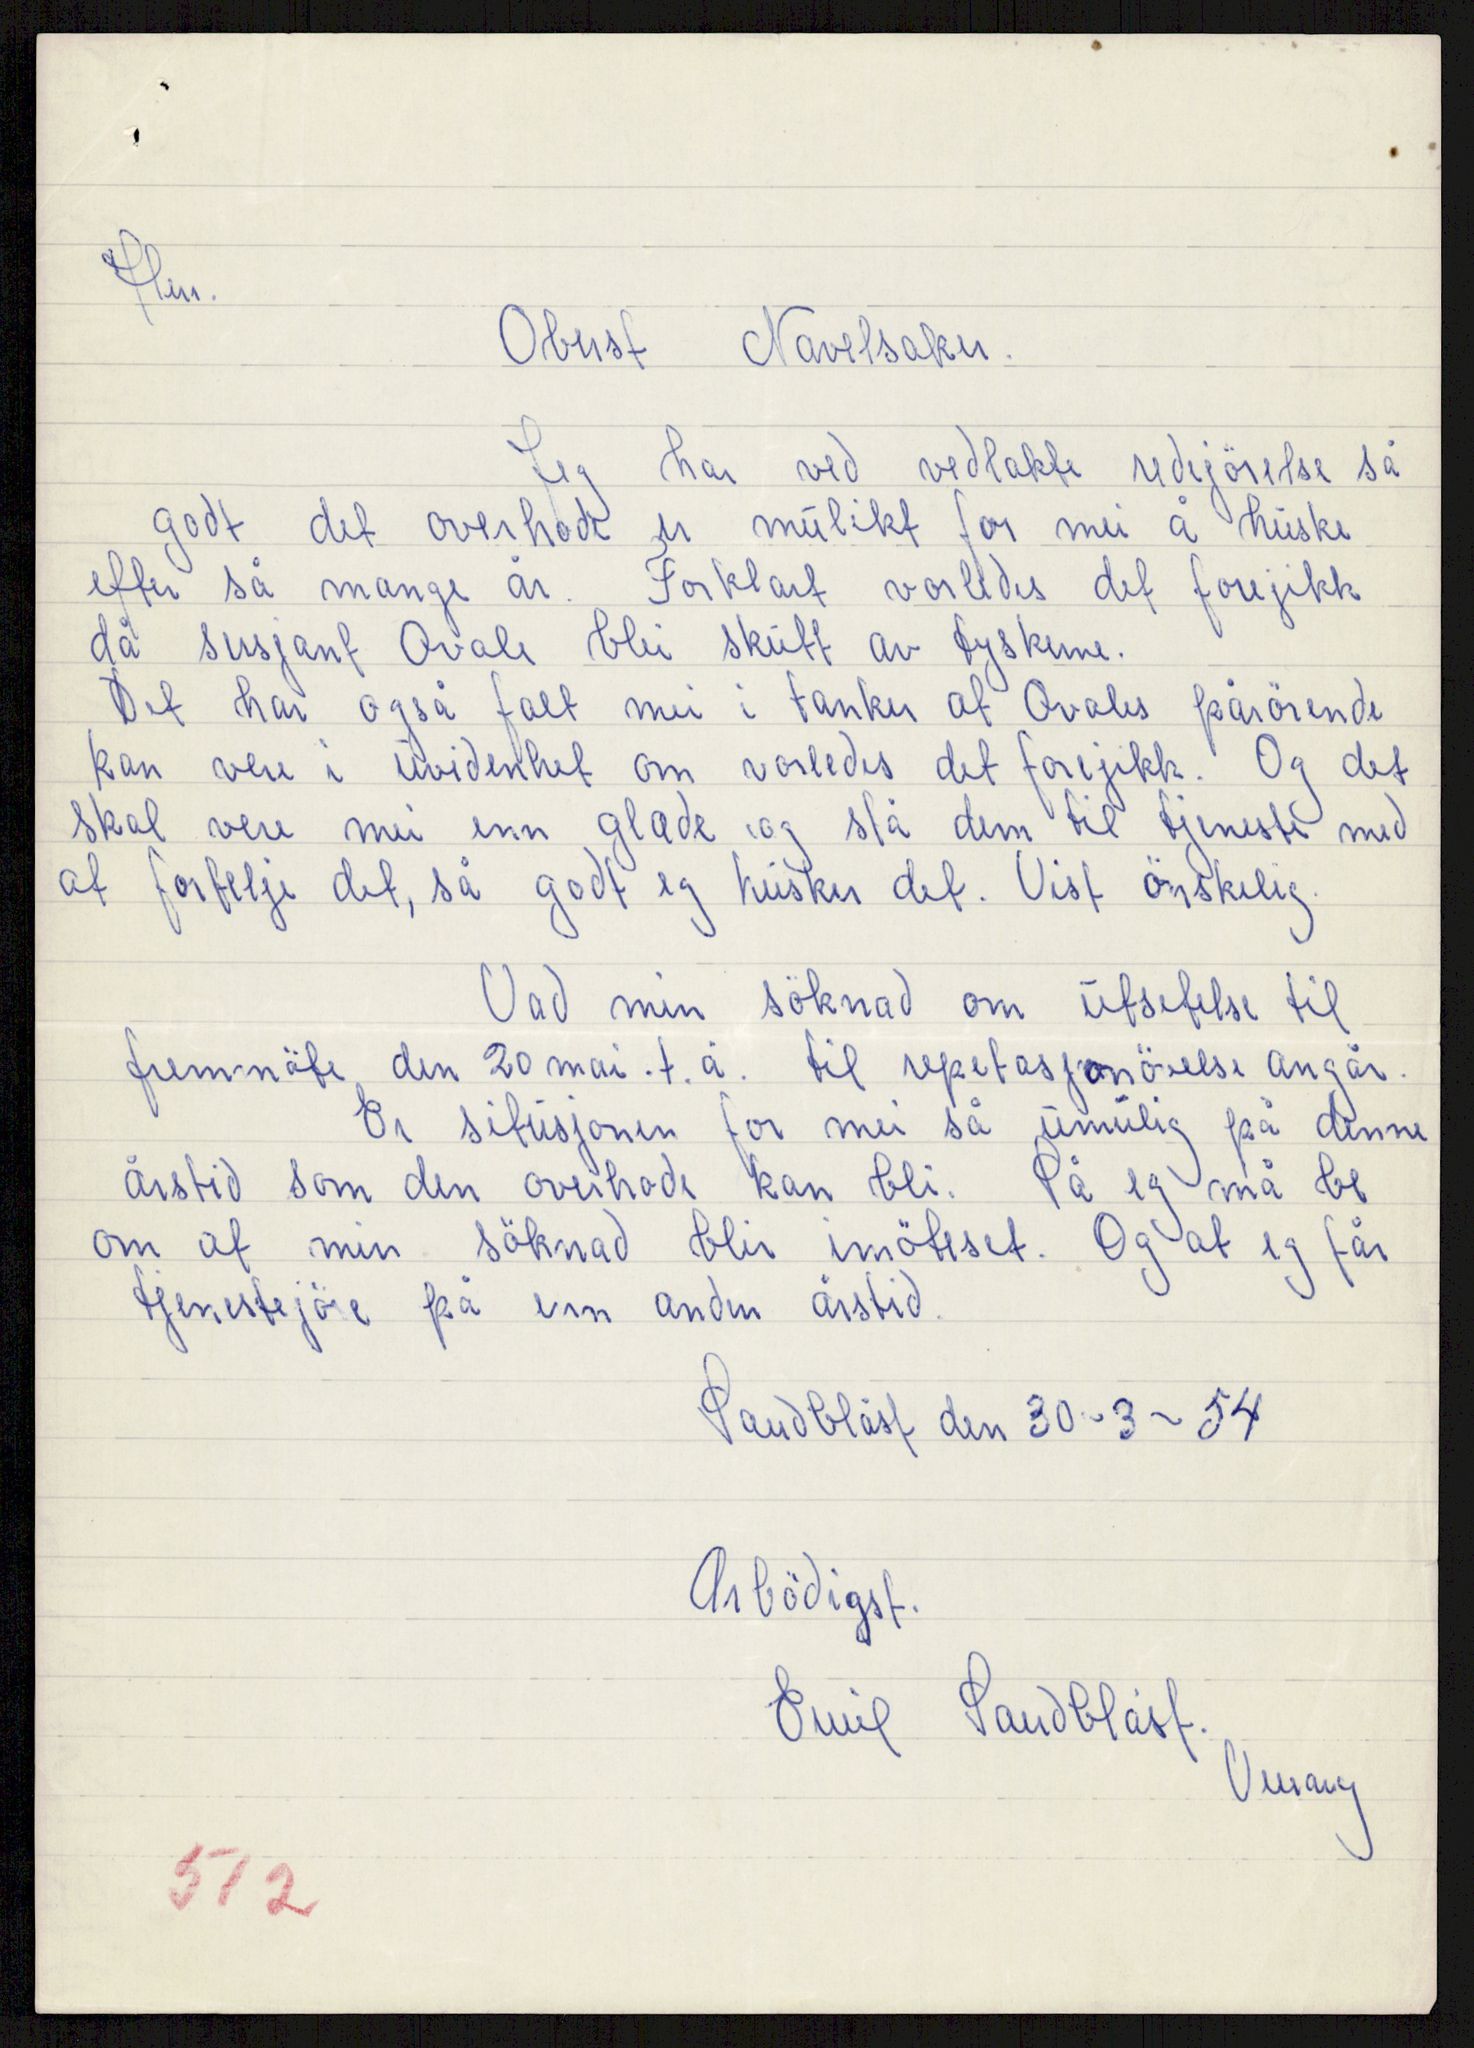 Herr.
Oberst Navelsaker.
Jeg har ved vedlakte redejörelse så
godt det overhode er mulikt for mei å huske
efter så mange år. Forklart vorledes det forejikk
då sersjant Ovale blei skutt av tyskerne.
Det har også falt mei i tanker at Ovales pårörende
kan vere i uvidenhet om vorledes det forejikk. Og det
skal vere mei enn glede og stå dem til tjeneste med
at fortelje det, så godt eg husker det. Vist önskelig.
Vad min söknad om utsetelse til
fremmöte den 20 mai. t. å. til repetasjonövelse angår.
Er situsjonen for mei så umulig på denne
årstid som den overhode kan bli. Så eg må be
om at min söknad blir imöteset. Og at eg får
tjenestejöre på enn anden årstid.
Sandblåst den 30-3-54
Ærbödigst.
Emil Sandblåst.
Vevang
512